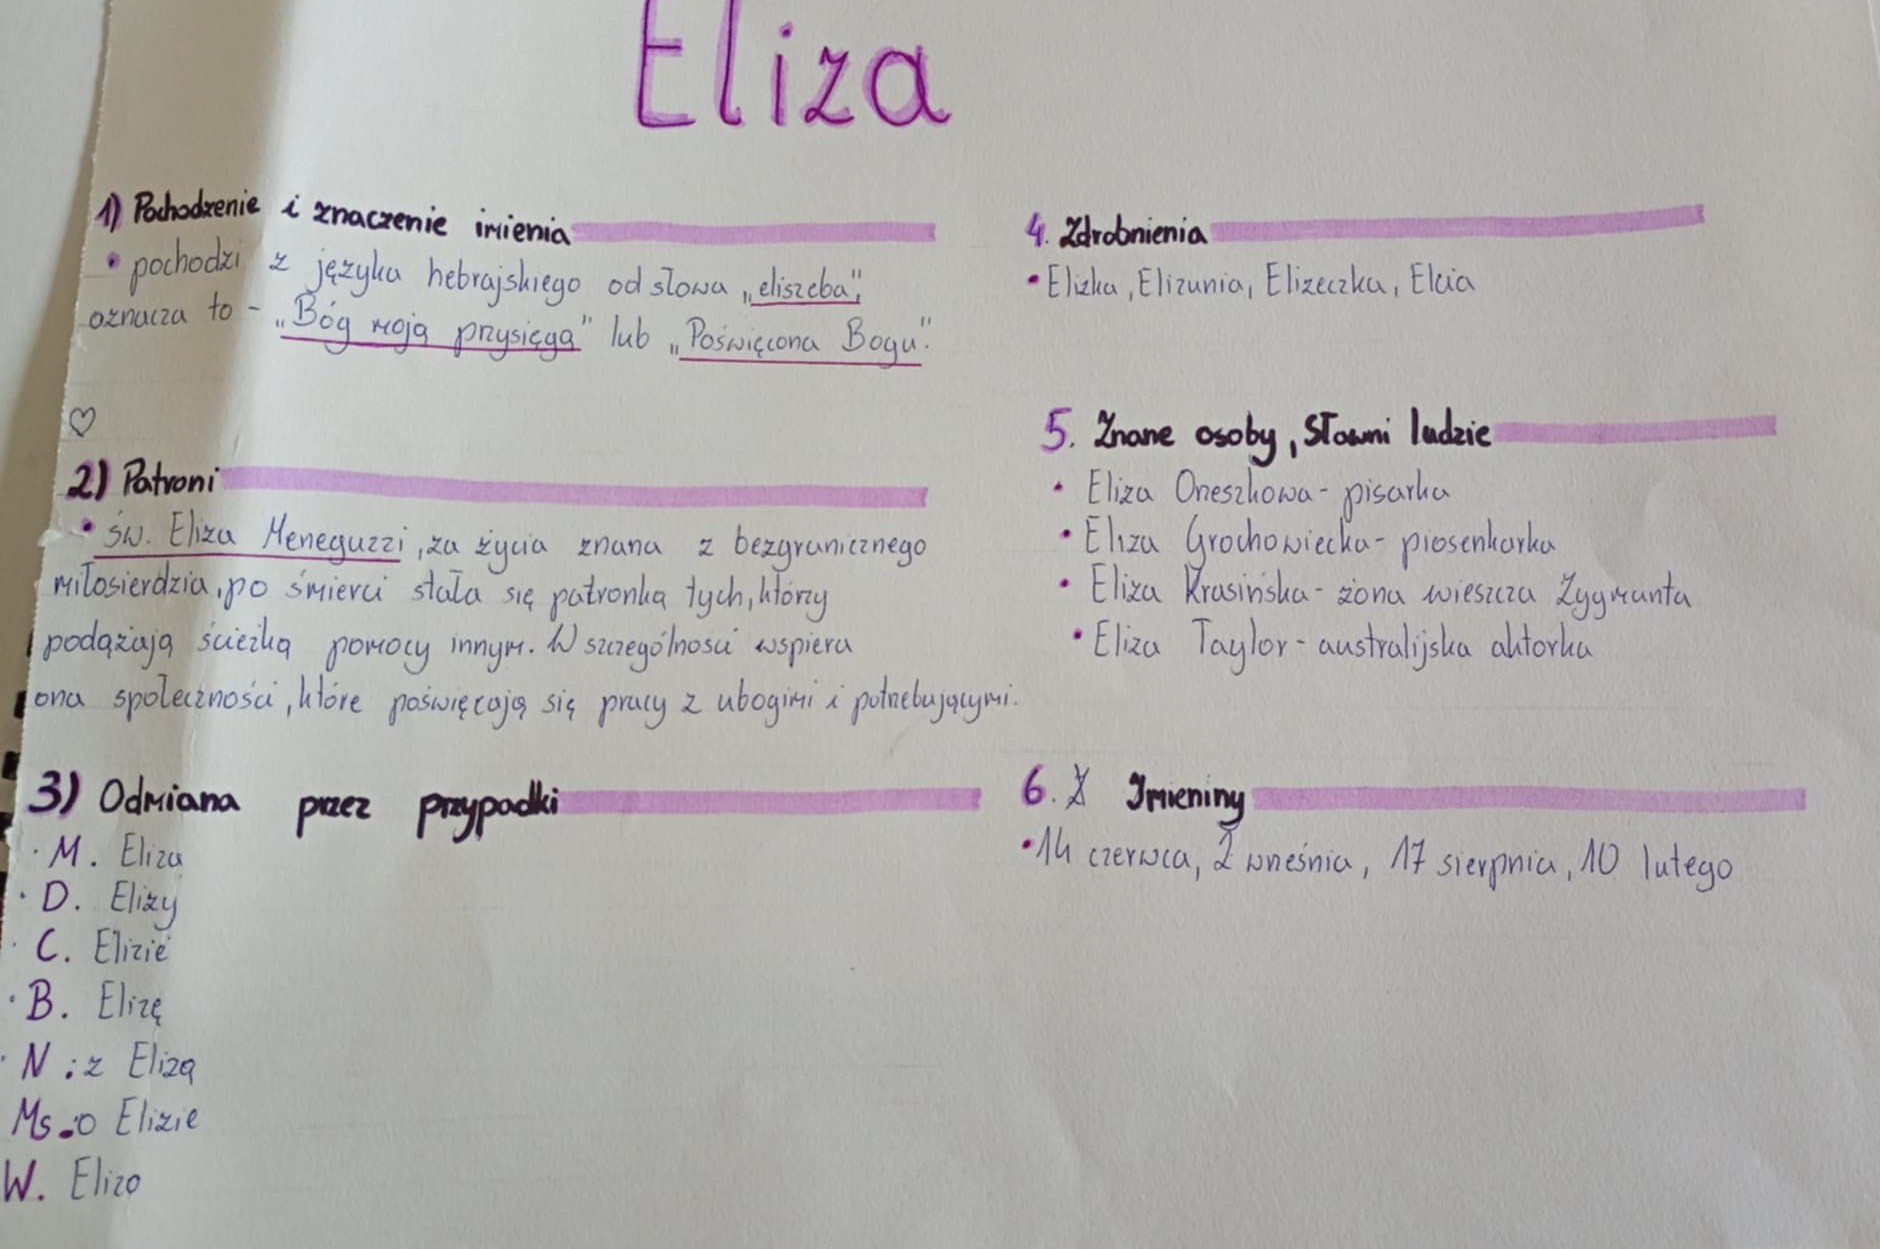 Eliza
1) Pochodzenie i znaczenie imienia
• pochodzi z języka hebrajskiego od słowa „eliszeba",
oznacza to - „Bóg moją przysięgą" lub „Poświęcona Bogu".
♡
2) Patroni
• św. Eliza Meneguzzi, za życia znana z bezgranicznego
miłosierdzia, po śmierci stała się patronką tych, którzy
podążają ścieżką pomocy innym. W szczególności wspiera
ona społeczności, które poświęcają się pracy z ubogimi i potrzebującymi.
3) Odmiana przez przypadki
• M. Eliza
• D. Elizy
• C. Elizie
• B. Elizę
• N : z Elizą
Ms.:o Elizie
W. Elizo
4. Zdrobnienia
• Elizka, Elizunia, Elizeczka, Elcia
5. Znane osoby, Sławni ludzie
• Eliza Orzeszkowa - pisarka
• Eliza Grochowiecka - piosenkarka
• Eliza Krasińska - żona wieszcza Zygmunta
• Eliza Taylor - australijska aktorka
6. Imieniny
• 14 czerwca, 2 września, 17 sierpnia, 10 lutego